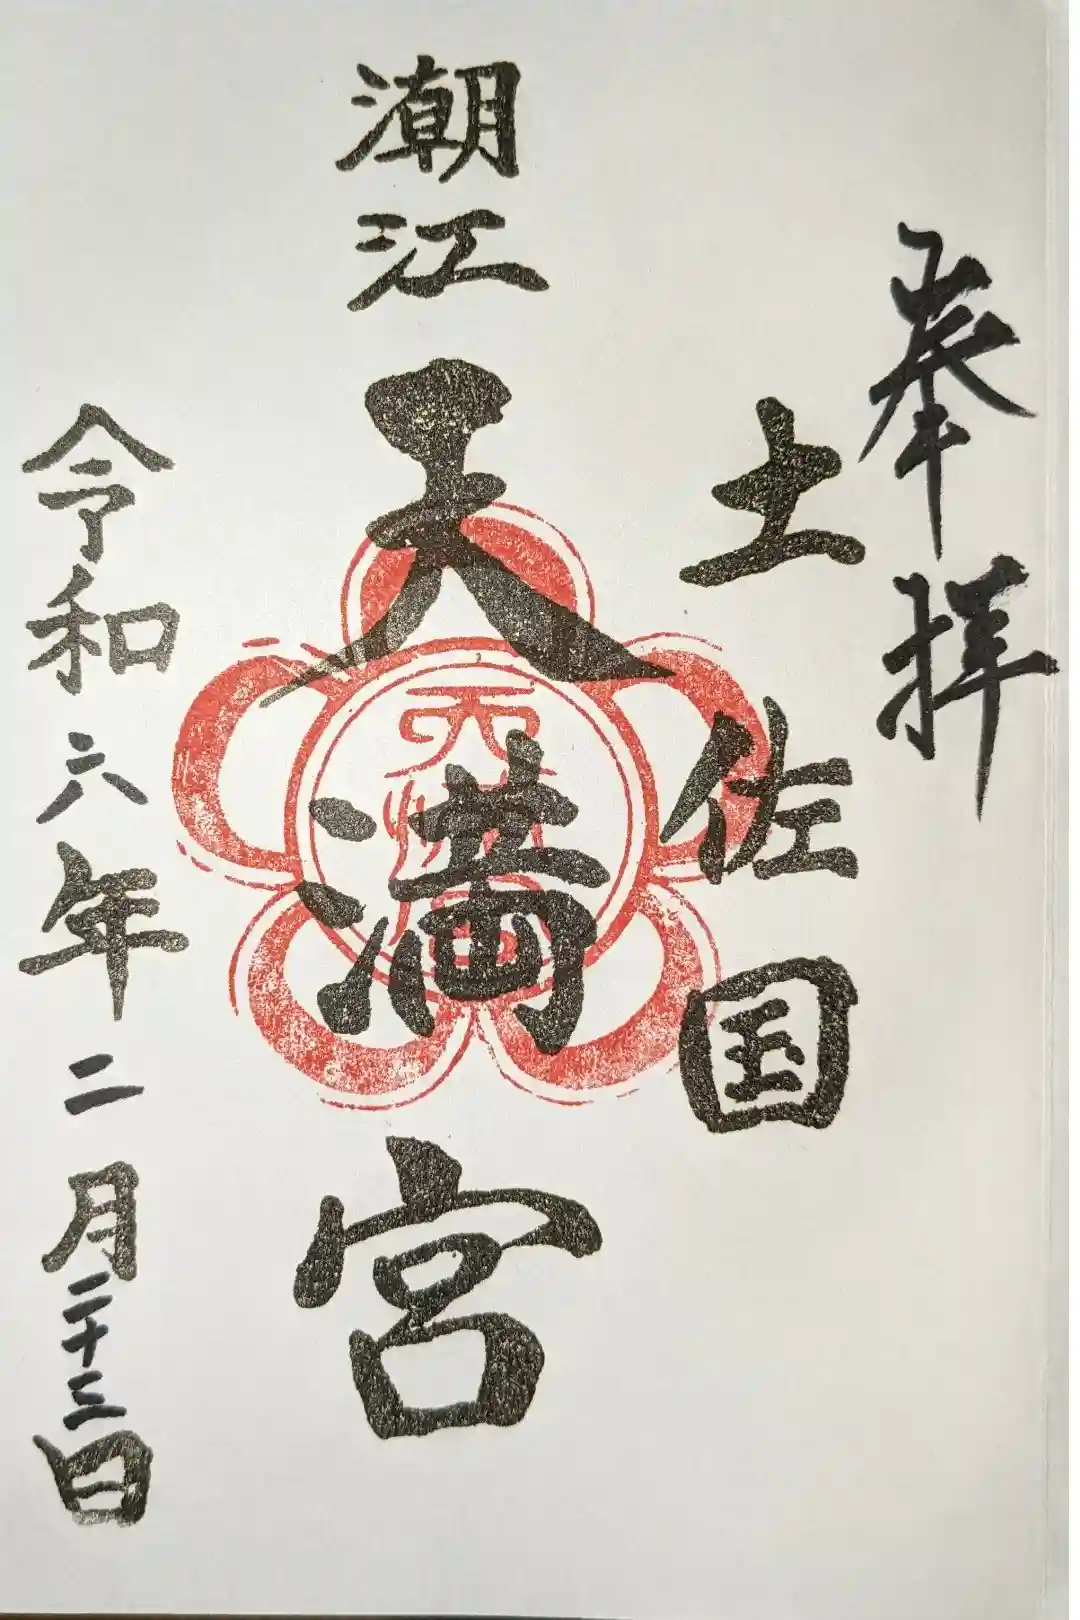 奉拝
土佐国
潮江天満宮
令和六年二月二十三日